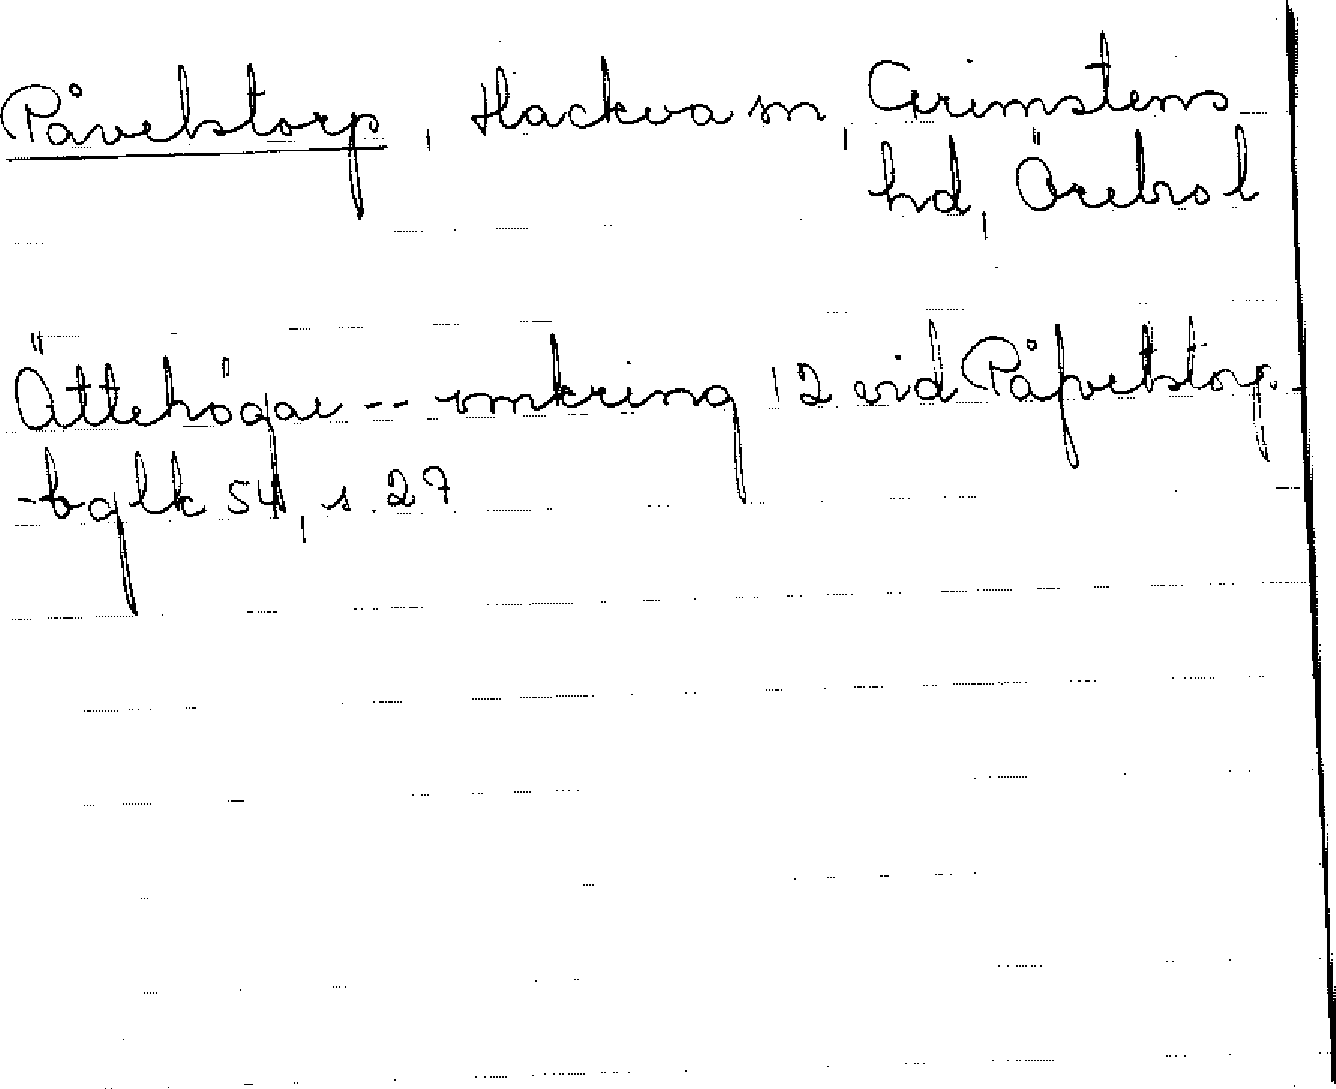 Påvelstorp, Hackva sn, Grimstens
hd, Örebro l
Ättehögar -- omkring 12 vid Påfvelstorp.
-bglk 54, s. 27